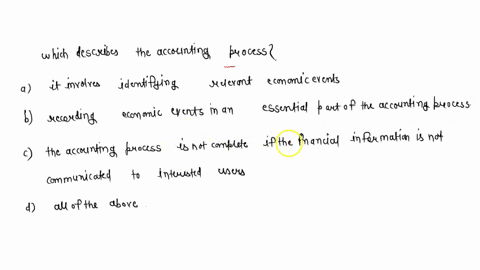 which describes the accounting process?
a) it involves identifying relevant economic events
b) recording economic events in an essential part of the accounting process
c) the accounting process is not complete if the financial information is not
communicated to interested users
d) all of the above